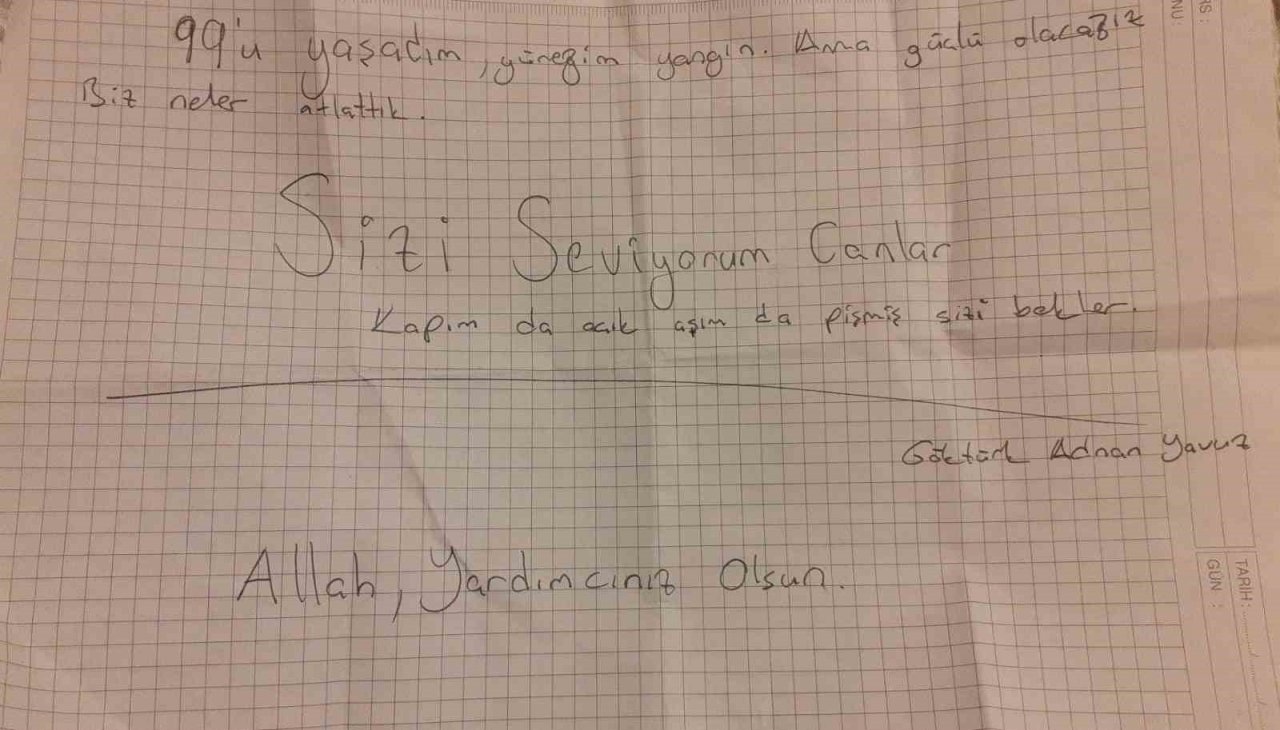 99'u yaşadım, yüreğim yangın. Ama güçlü olacağız
Biz neler atlattık.
Sizi Seviyorum Canlar
Kapım da acık aşım da pişmiş sizi bekler.
Göktürk Adnan Yavuz
Allah, Yardımcınız Olsun.
NU:
TARİH:
GÜN :